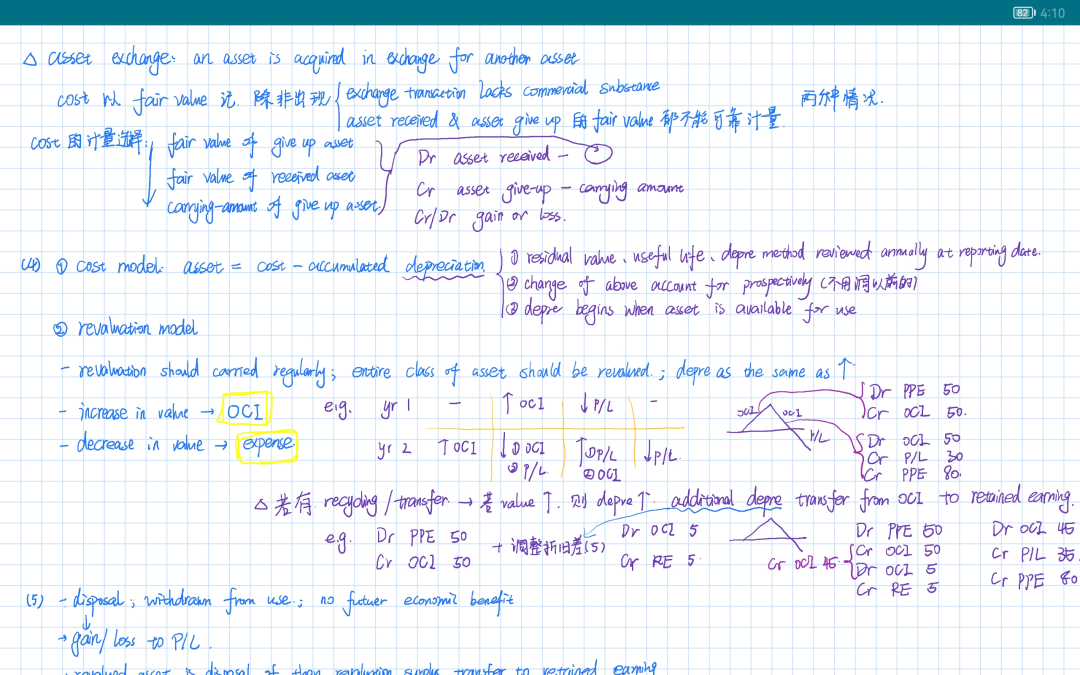 82 4:10
△ asset exchange: an asset is acquired in exchange for another asset
cost 以 fair value 记. 除非出现 { exchange transaction lacks commercial substane
asset received & asset give up 的 fair value 都不能可靠计量
两种情况.
cost 的计量选择:
fair value of give up asset
fair value of received asset
carrying-amount of give up asset.
Dr asset received —
Cr asset give-up — carrying amount
Cr/Dr gain or loss.
(4) ① cost model: asset = cost - accumulated depreciation
① residual value、useful life、depre method reviewed annually at reporting date.
② change of above account for prospectively (不用调以前的)
③ depre begins when asset is available for use
② revaluation model
- revaluation should carried regularly; entire class of asset should be revalued.; depre as the same as ↑
- increase in value → OCI
- decrease in value → expense
e.g. yr 1 — ↑ OCI ↓ P/L —
yr 2 ↑ OCI ↓ ① OCI ② P/L. ↑ ① P/L ② OCI ↓ P/L.
OCI OCI P/L
Dr PPE 50
Cr OCI 50.
Dr OCI 50
Cr P/L 30
Cr PPE 80.
△ 若有 recycling/transfer → 若 value ↑. 则 depre ↑. additional depre transfer from OCI to retained earning.
e.g. Dr PPE 50
Cr OCI 50
+ 调整折旧差(5)
Dr OCI 5
Cr RE 5.
Cr OCI 45.
Dr PPE 50
Cr OCI 50
Dr OCI 5
Cr RE 5
Dr OCI 45
Cr P/L 35
Cr PPE 80
(5) - disposal; withdrawn from use.; no futuer economic benefit
→ gain/loss to P/L.